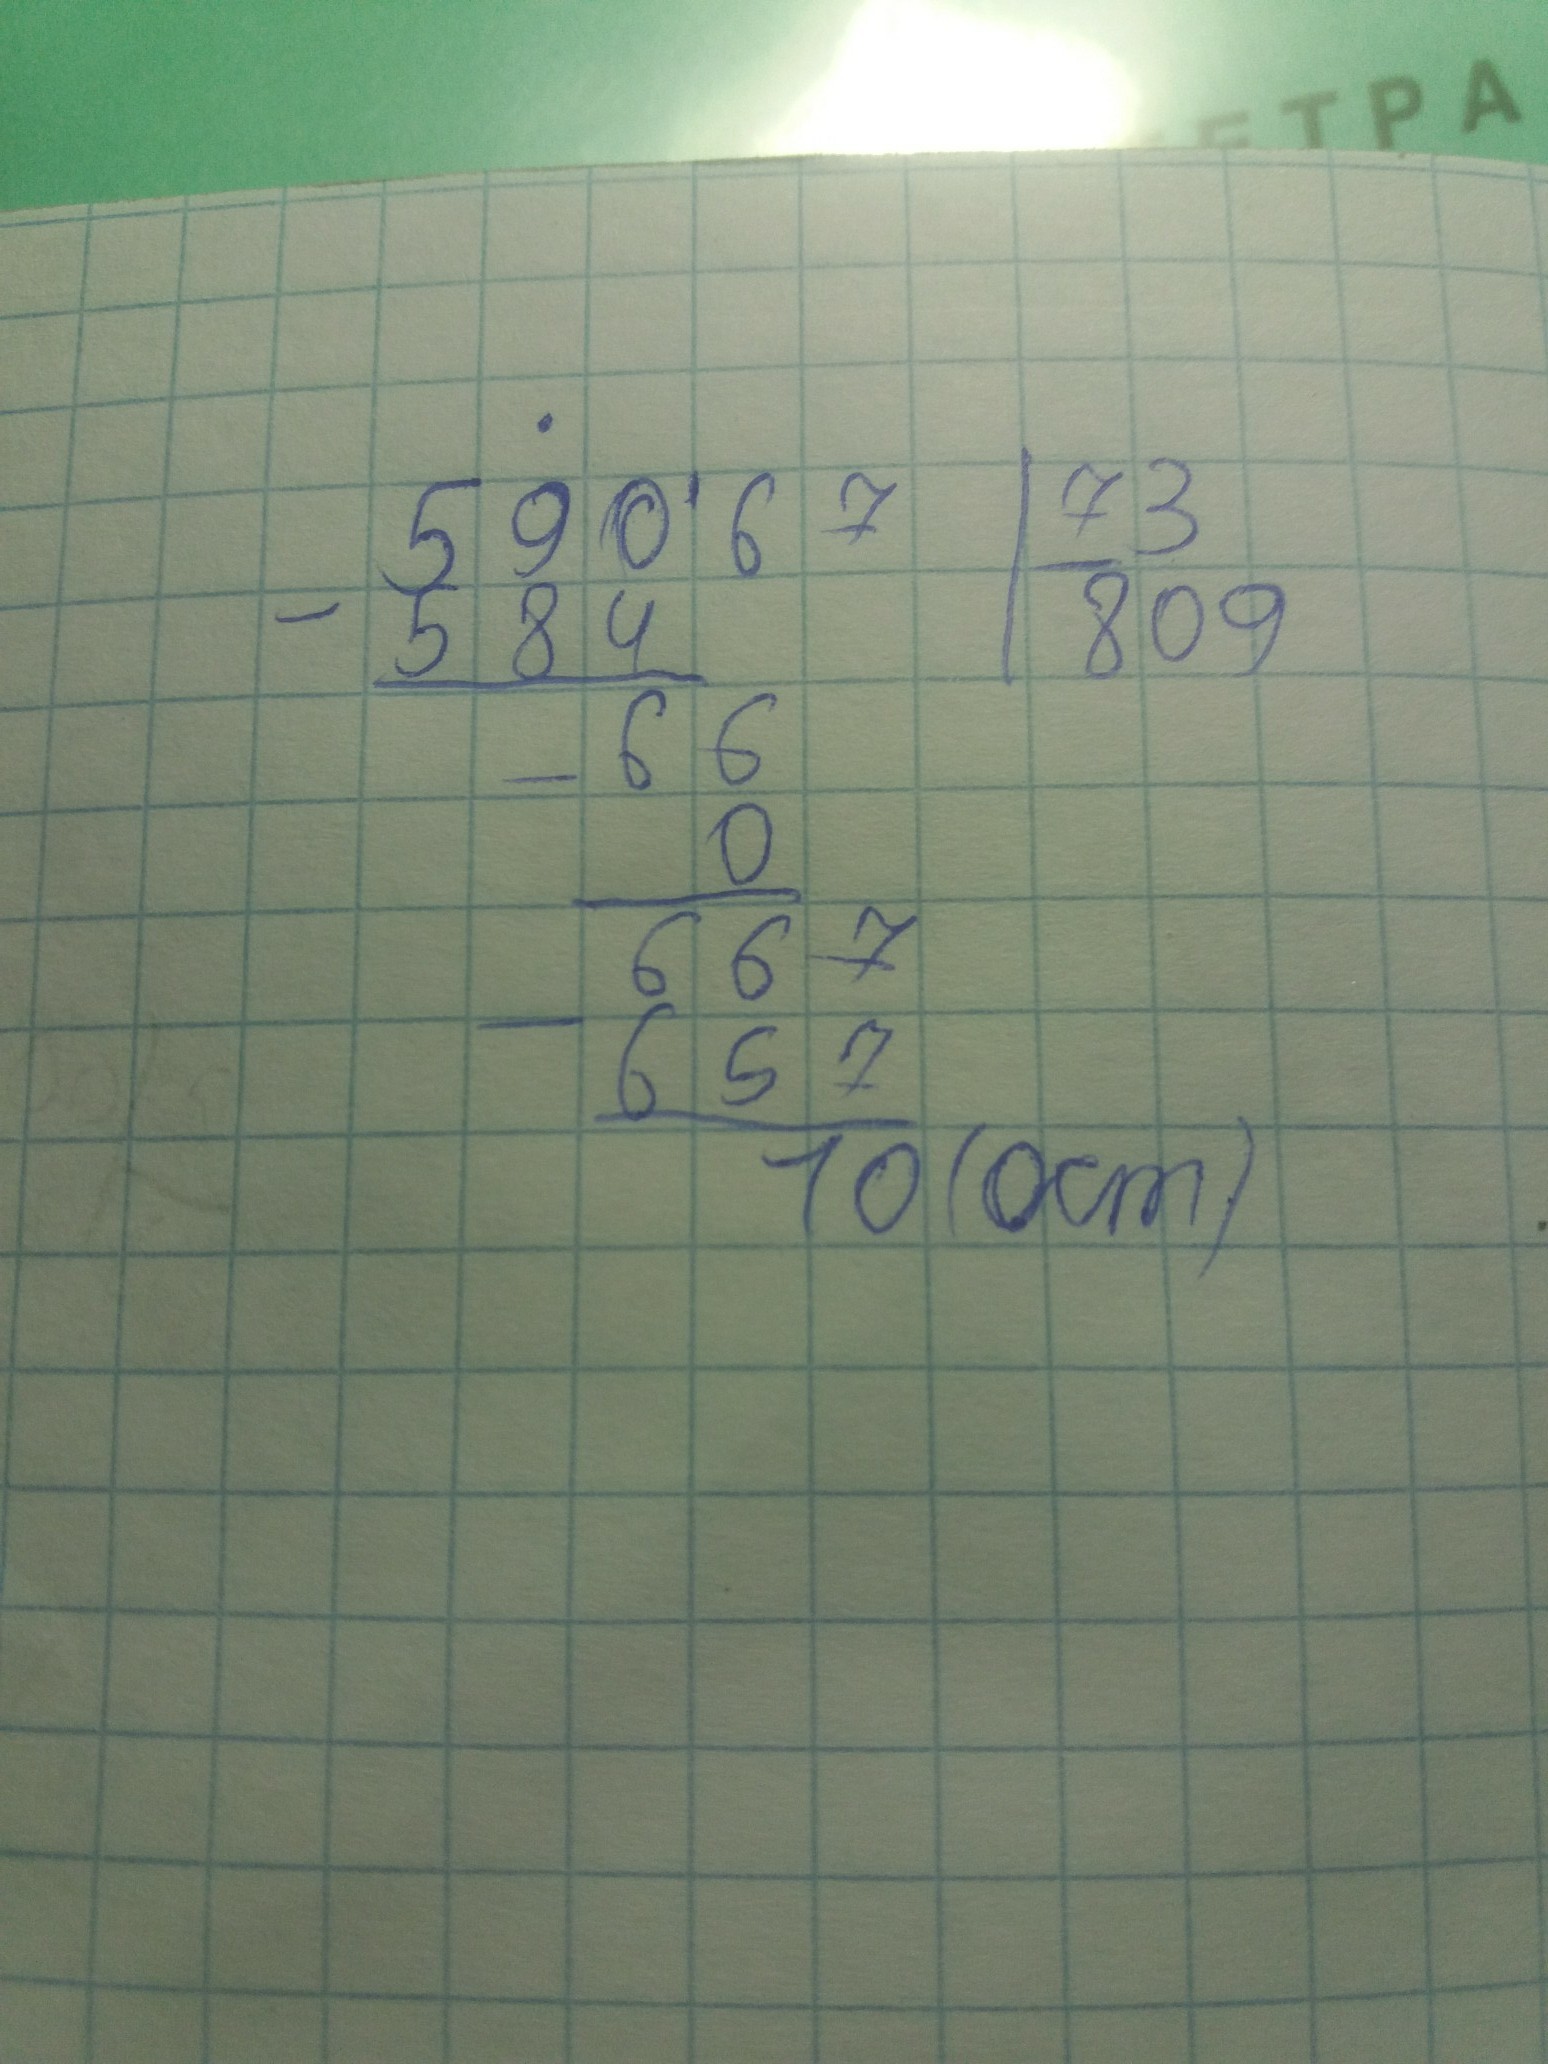 ЕТРА
590'67 73
- 584 809
- 66
0
667
- 657
10 (Ост)